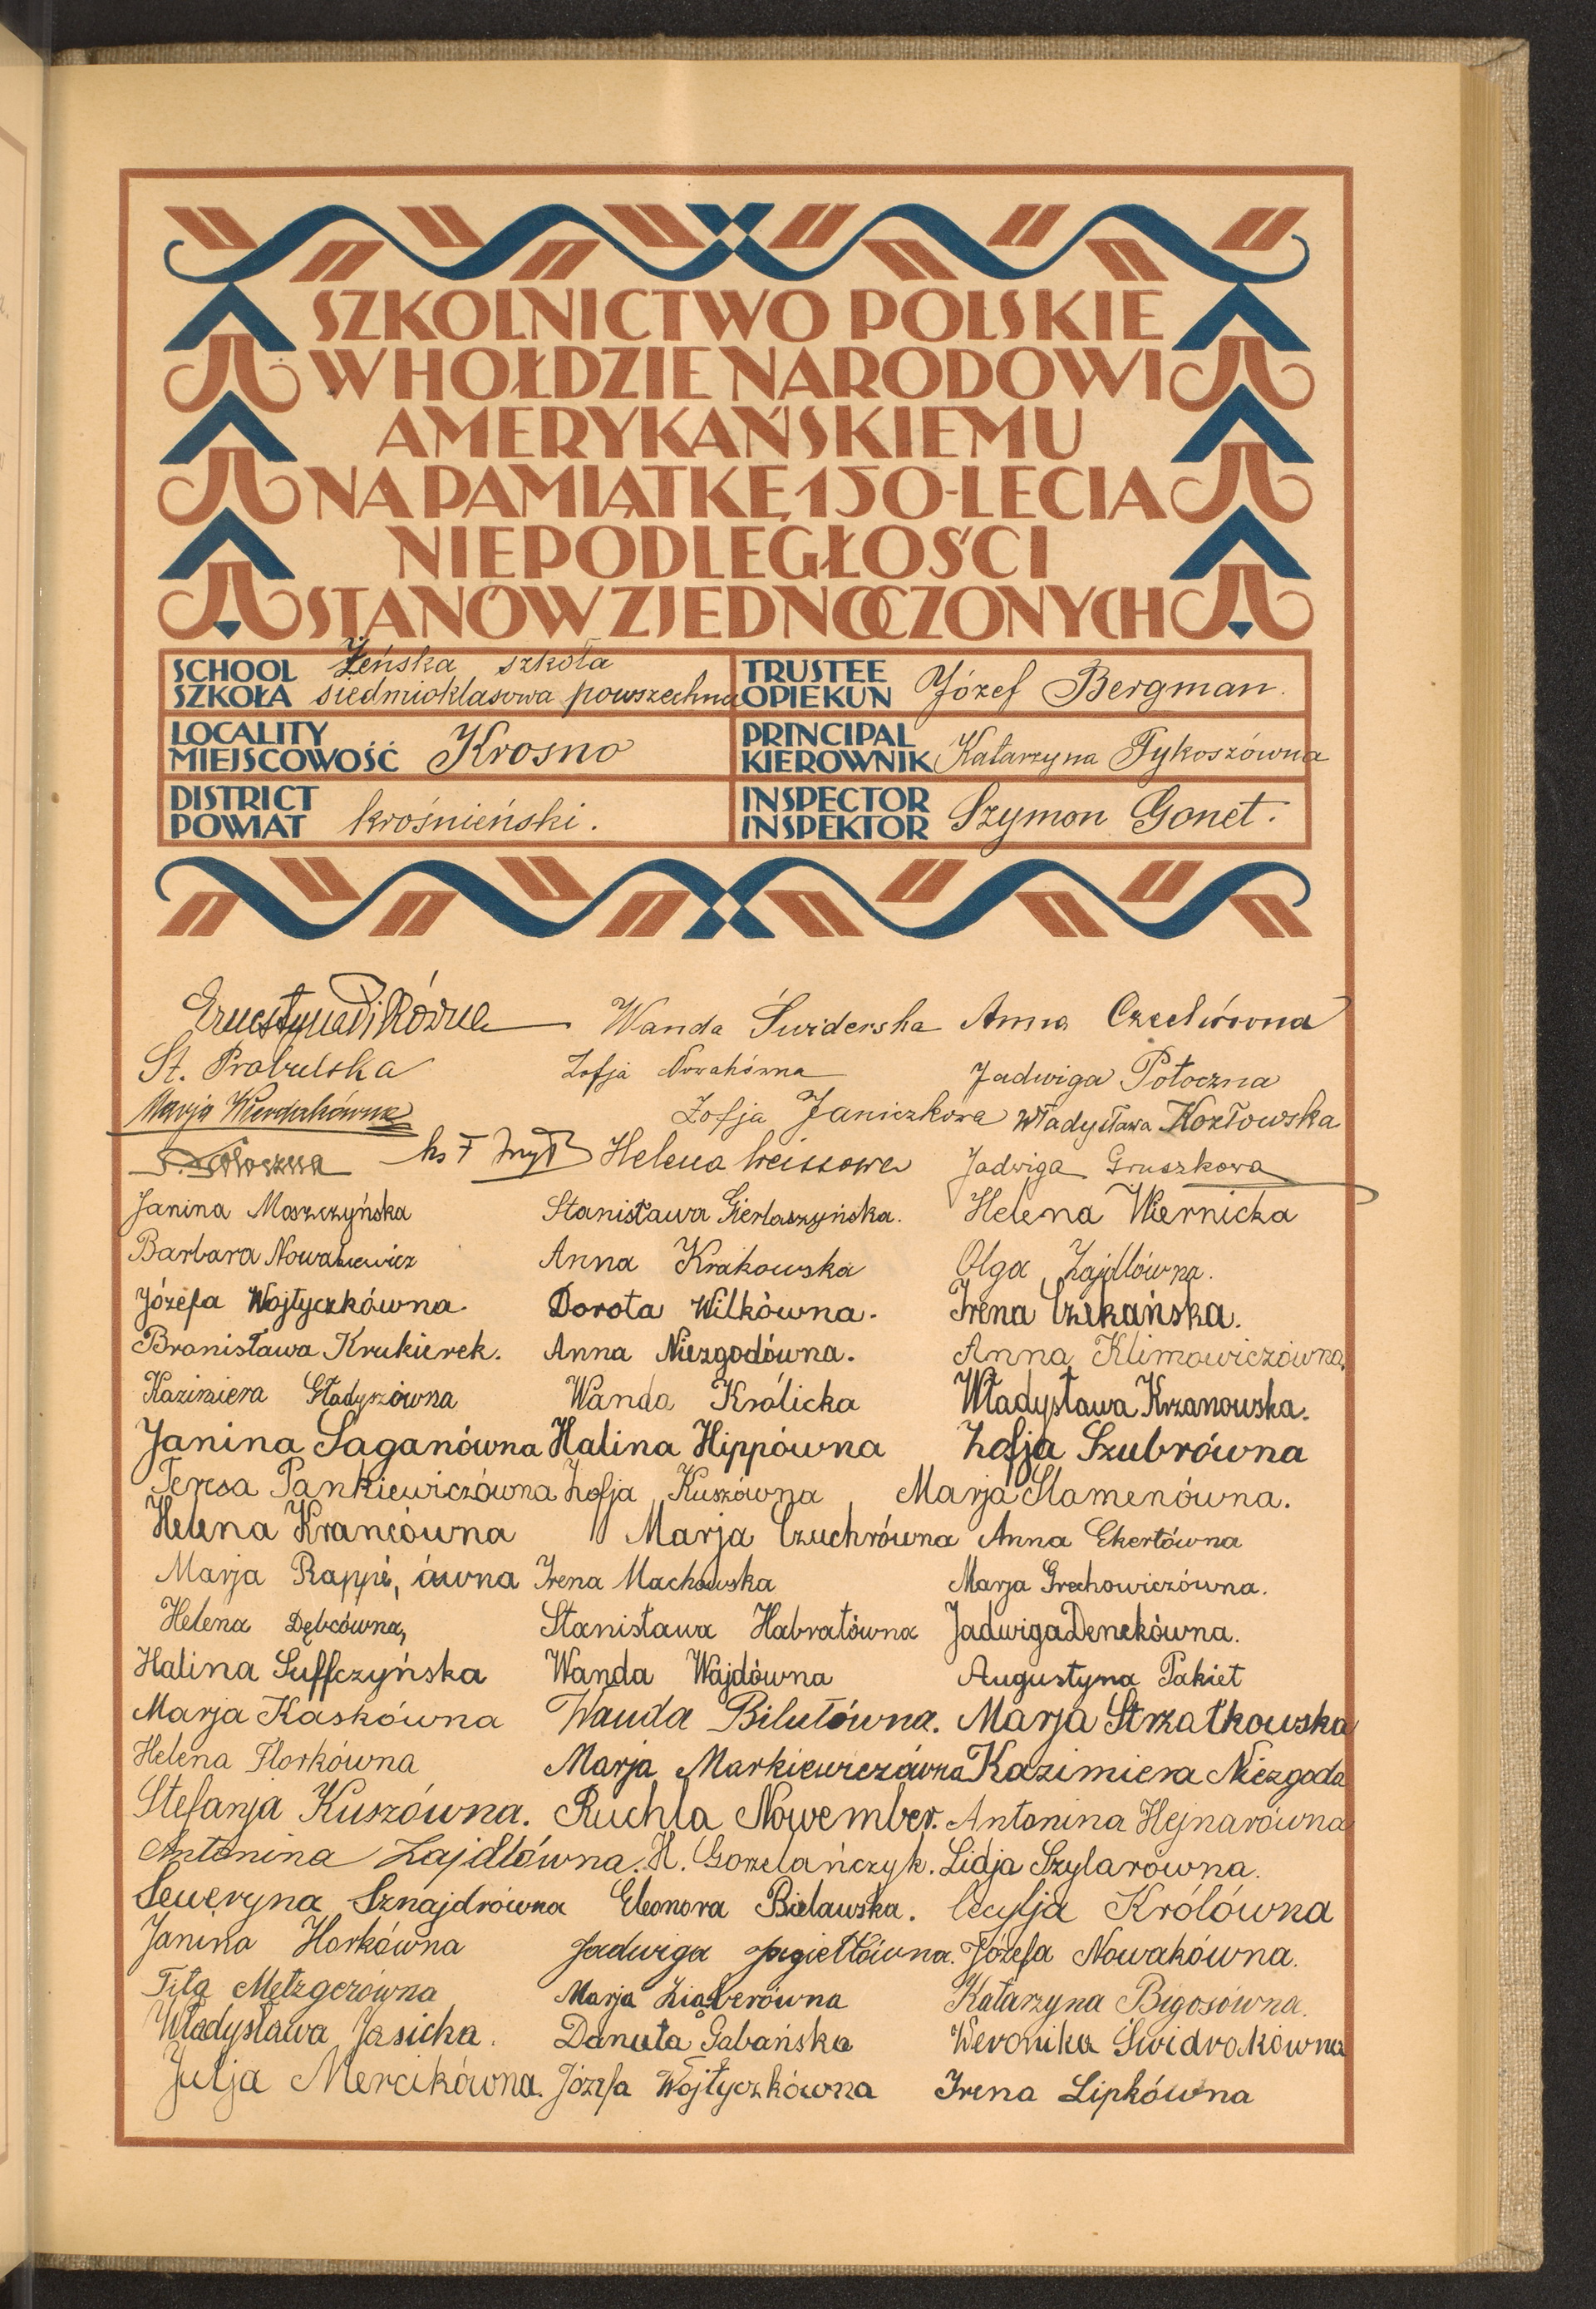 SZKOLNICTWO POLSKIE
W HOŁDZIE NARODOWI
AMERYKAŃSKIEMU
NA PAMIĄTKĘ 150-LECIA
NIEPODLEGŁOŚCI
STANÓW ZJEDNOCZONYCH
SCHOOL SZKOŁA Żeńska szkoła siedmioklasowa powszechna
TRUSTEE OPIEKUN Józef Bergman.
LOCALITY MIEJSCOWOŚĆ Krosno
PRINCIPAL KIEROWNIK Katarzyna Tykoszówna
DISTRICT POWIAT krośnieński.
INSPECTOR INSPEKTOR Szymon Gonet.
Wanda Świderska Anna
St. Zofja Nowakówna Jadwiga Potoczna
Marja Zofja Janiczkowa Władysława Kozłowska
ks F Helena Weissowa Jadwiga Gruszkowa
Janina Moszczyńska Stanisława Gierlaszyńska. Helena Wiernicka
Barbara Nowakiewicz Anna Krakowska Olga Zajdlówna.
Józefa Wojtyczkówna Dorota Wilkówna. Irena Czekańska.
Bronisława Krukierek. Anna Niezgodówna. Anna Klimowiczówna.
Kazimiera Gładyszówna Wanda Królicka Władysława Krzanowska.
Janina Saganówna Halina Hippówna Zofja Szubrówna
Teresa Pankiewiczówna Zofja Kuszówna Marja Slamenówna.
Helena Krancówna Marja Czuchrówna Anna Ekertówna
Marja Rappé, ówna Irena Machowska Marja Grochowiczówna.
Helena Dębcówna, Stanisława Habratówna Jadwiga Denekówna.
Halina Suffczyńska Wanda Wajdówna Augustyna Pakiet
Marja Kaskówna Wanda Bilutówna. Marja Strzałkowska
Helena Florkówna Marja Markiewiczówna Kazimiera Niezgoda
Stefanja Kuszówna. Ruchla Nowember. Antonina Hejnarówna
Antonina Zajdlówna. H. Gorzelańczyk. Lidja Szylarówna.
Seweryna Sznajdrówna Eleonora Bielawska. Cecylja Królówna
Janina Horkówna Jadwiga Jagiełłówna. Józefa Nowakówna.
Tila Metzgerówna Marja Katarzyna Bigosówna.
Władysława Jasicka. Danuta Gabańska Weronika Świdrakówna
Julja Mercikówna. Józefa Wojtyczkówna Irena Lipkówna